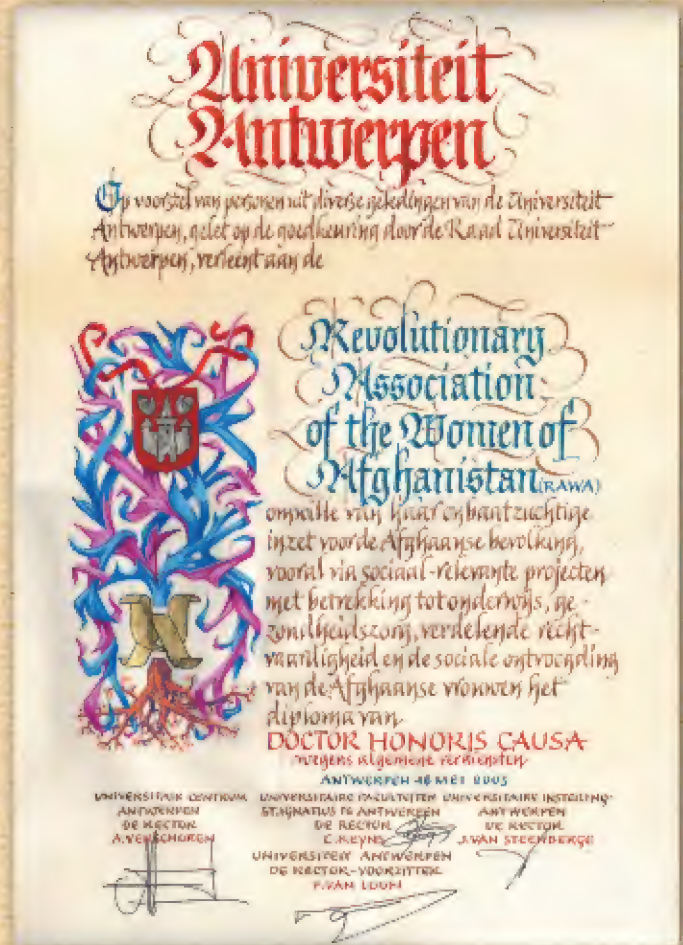 Universiteit
Antwerpen
Op voorstel van personen uit diverse geledingen van de Universiteit
Antwerpen, gelet op de goedkeuring door de Raad Universiteit
Antwerpen, verleent aan de
Revolutionary
Association
of the Women of
Afghanistan (RAWA)
omwille van haar onbaatzuchtige
inzet voor de Afghaanse bevolking,
vooral via sociaal-relevante projecten
met betrekking tot onderwijs, ge-
zondheidszorg, verdelende recht-
vaardigheid en de sociale ontvoogding
van de Afghaanse vrouwen het
diploma van
DOCTOR HONORIS CAUSA
wegens algemene verdiensten
ANTWERPEN 16 MEI 2003
UNIVERSITAIR CENTRUM UNIVERSITAIRE FACULTEITEN UNIVERSITAIRE INSTELLING
ANTWERPEN ST.IGNATIUS TE ANTWERPEN ANTWERPEN
DE RECTOR DE RECTOR DE RECTOR
A. VERSCHOREN C. REYNS J. VAN STEENBERGE
UNIVERSITEIT ANTWERPEN
DE RECTOR-VOORZITTER
F. VAN LOON